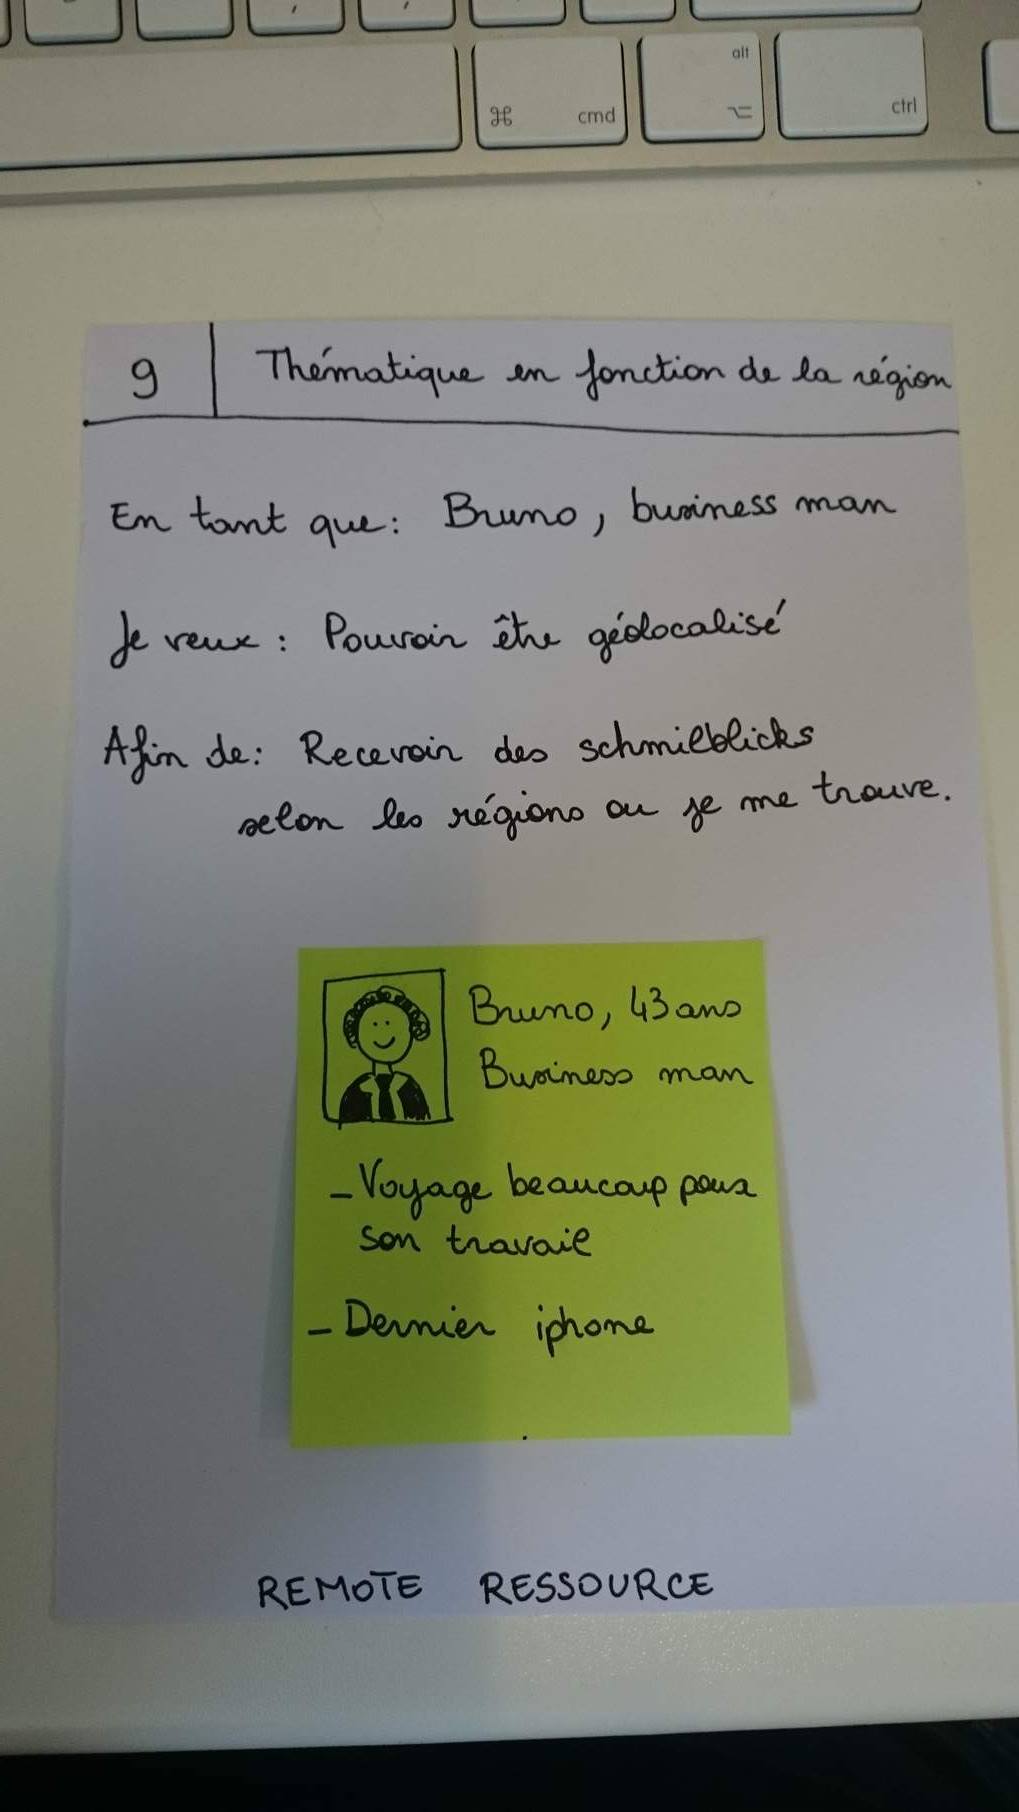 alt
⌘ cmd ⌥ ctrl
9 Thématique en fonction de la région
En tant que: Bruno, business man
Je veux: Pouvoir être géolocalisé
Afin de: Recevoir des schmilblicks
selon les régions ou je me trouve.
Bruno, 43 ans
Business man
- Voyage beaucoup pour
son travail
- Dernier iphone
REMOTE RESSOURCE